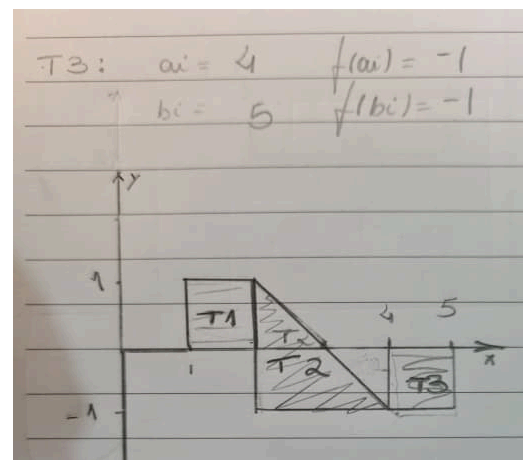 T3: ai = 4 f(ai) = -1
bi = 5 f(bi) = -1
y
1
T1
4 5
T2
T2
x
1
T3
-1